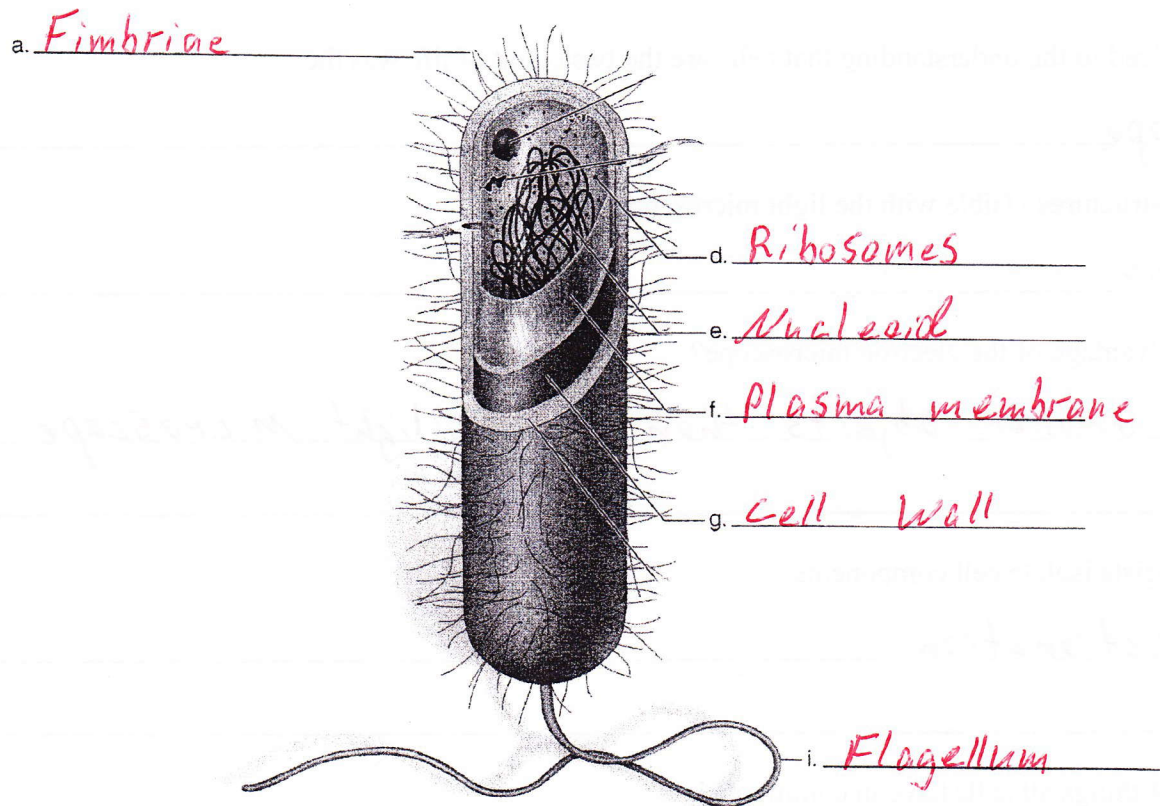 a. Fimbriae
d. Ribosomes
e. Nucleoid
f. Plasma membrane
g. Cell Wall
i. Flagellum